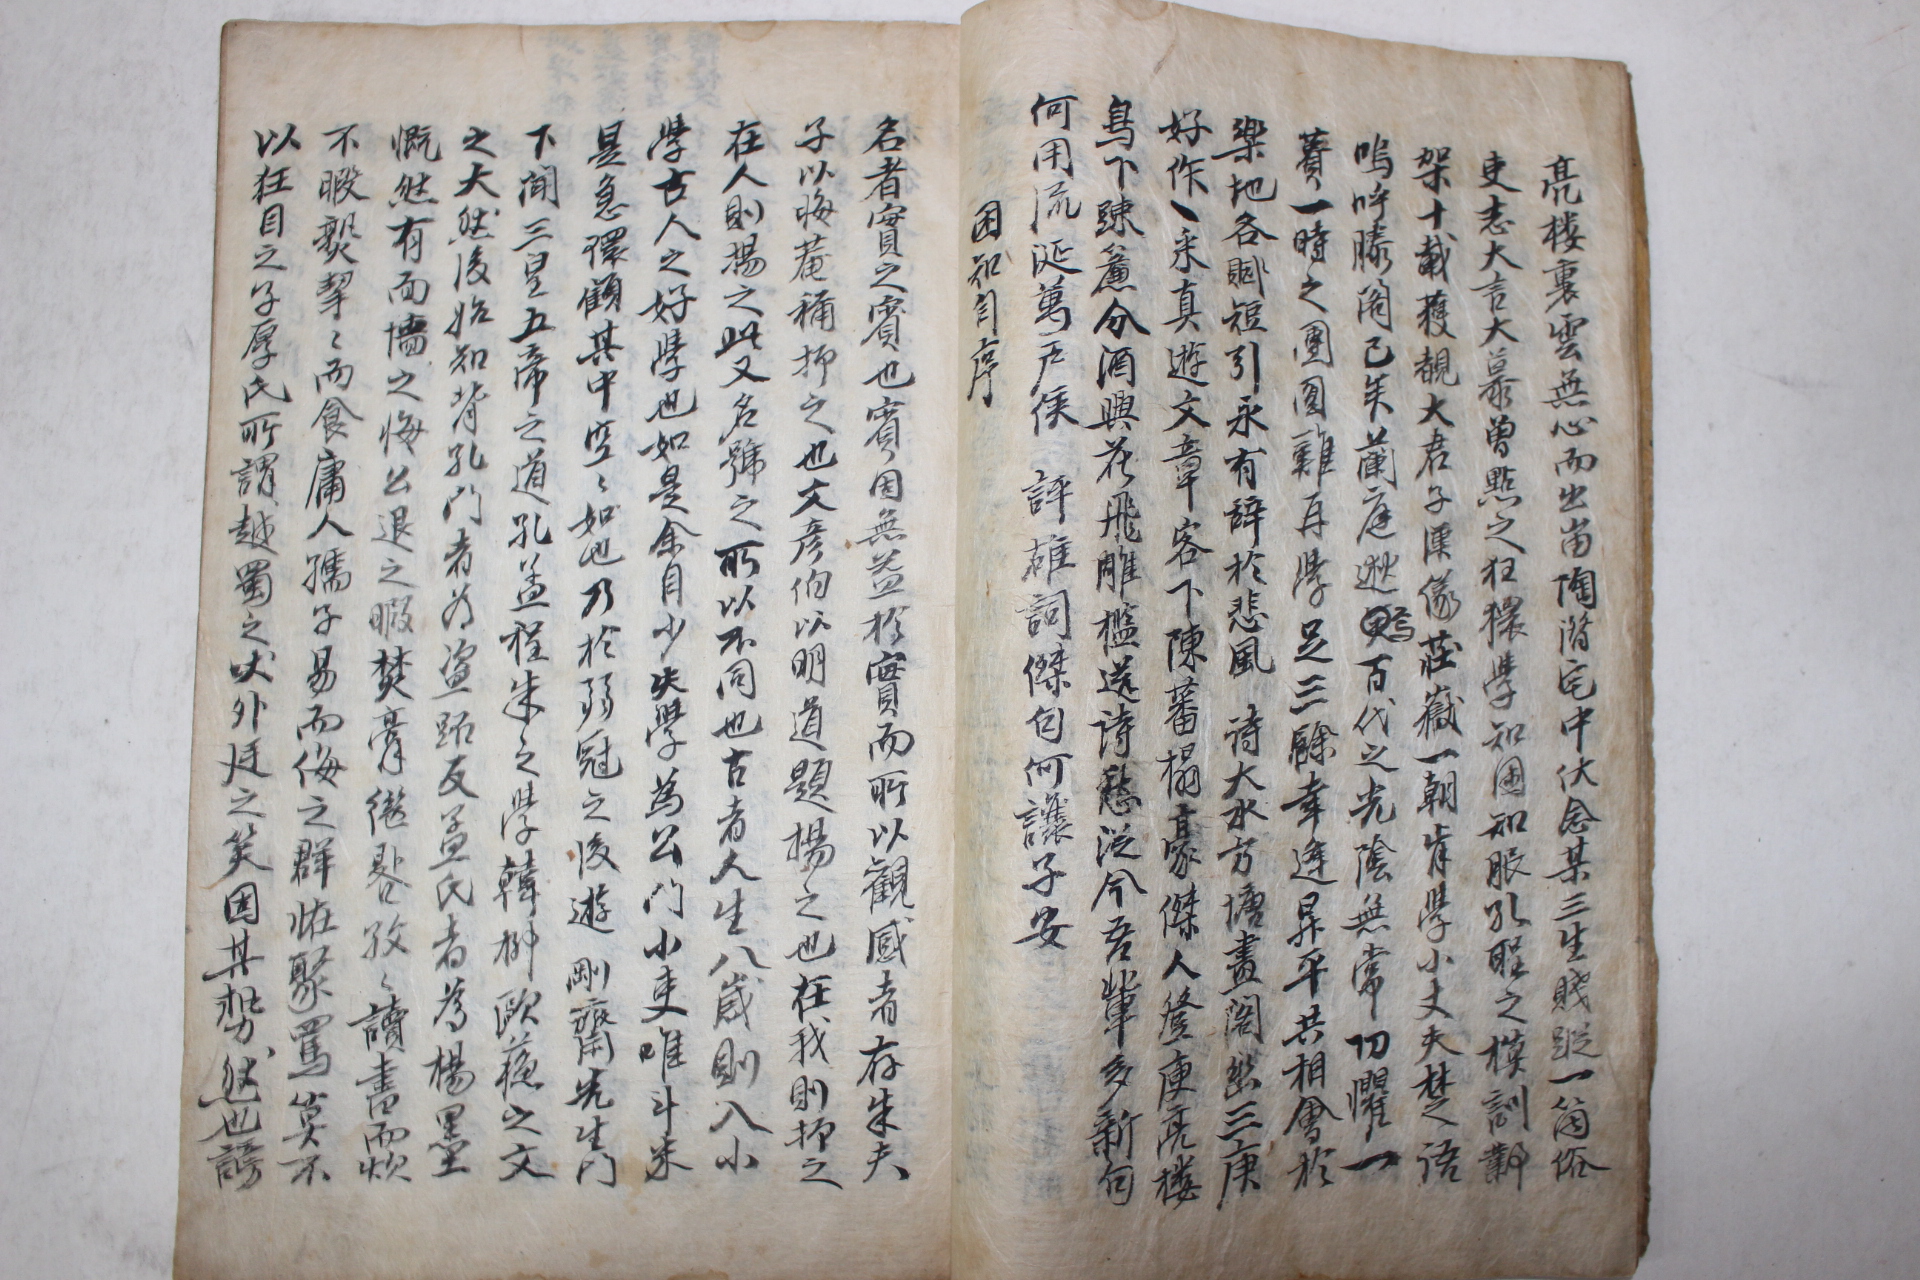 亮樓裏雲無心而出岫陶潛宅中伏念某三生賤蹤一箇俗
吏志大言大慕曾點之狂獧學知困知服孔聖之模訓鄴
架十載獲覩大君子漢儀莊嶽一朝肯學小丈夫楚語
嗚呼滕閣已矣蘭庭逖百代之光陰無常切懼一
蕢一時之團圓難再學足三餘幸逢昇平共相會於
樂地各賦短引永有辭於悲風 詩大水方塘畫閣幽三庚
好作一來真遊文章客下陳蕃榻豪傑人登庾亮樓
鳥下踈簾分酒興花飛雕檻送詩愁從今吾輩多新句
何用流涎萬戶侯 評雄詞傑句何讓子安
困知自序
名者實之賓也賓固無益於實而所以觀感者存朱夫
子以晦菴稱抑之也文彥伯以明道題揚之也在我則抑之
在人則揚之此又名號之所以不同也古者人生八歲則入小
學古人之好學也如是余自少失學為公門小吏唯斗米
是急獧顧其中空〻如也乃於弱冠之後遊 剛齋先生門
下聞三皇五帝之道孔孟程朱之學韓柳歐蘓之文
之大然後始知背孔門者為盜跖反孟氏者為楊墨
慨然有面墻之悔公退之暇焚膏繼晷孜〻讀書而煩
不暇翫挈〻而食庸人孺子易而侮之群怪聚罵莫不
以狂目之子厚氏所謂越蜀之吠外廷之笑固其勢然也謗